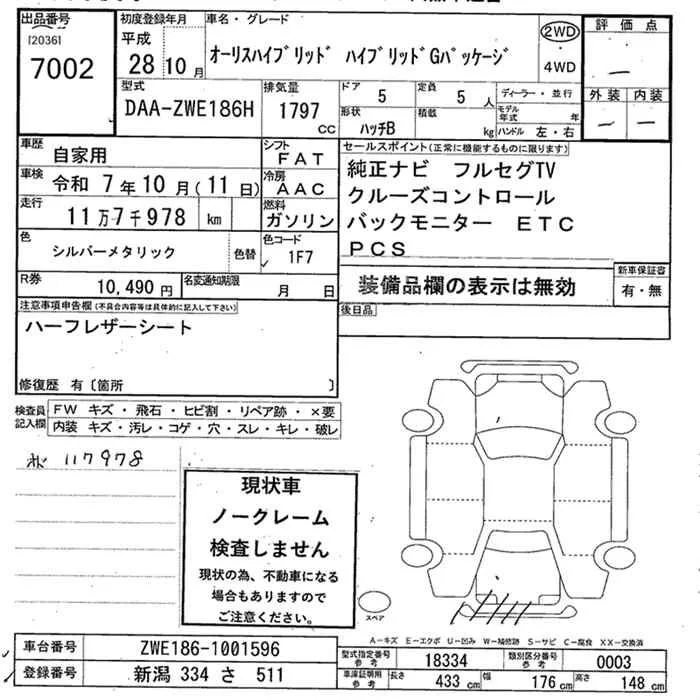 出品番号
[2036]
7002
初度登録年月
平成
28 10 月
車名・グレード
オーリスハイブリッド ハイブリッドGパッケージ
2WD
4WD
評価点
—
外装 内装
— —
型式
DAA-ZWE186H
排気量
1797
CC
ドア
5
定員
5 人
形状
ハッチB
積載
kg
ディーラー・並行
モデル年式 年
ハンドル 左・右
車歴
自家用
シフト
FAT
車検
令和 7年10月(11日)
冷房
AAC
走行
11万7千978 km
燃料
ガソリン
色
シルバーメタリック
色替
色コード
1F7
R券
10,490円
名変通知期限
月 日
セールスポイント(正常に機能するものに限ります)
純正ナビ フルセグTV
クルーズコントロール
バックモニター ETC
PCS
装備品欄の表示は無効
新車保証書
有・無
後日品
注意事項申告欄(不具合内容等は具体的に記入して下さい)
ハーフレザーシート
修復歴 有〔箇所 〕
検査員記入欄
FW キズ・飛石・ヒビ割・リペア跡・×要
内装 キズ・汚レ・コゲ・穴・スレ・キレ・破レ
117978
現状車
ノークレーム
検査しません
現状の為、不動車になる
場合もありますので
ご注意ください。
スペア
A-キズ E-エクボ U-凹み W-補修跡 S-サビ C-腐食 XX-交換済
車台番号
ZWE186-1001596
登録番号
新潟 334 さ 511
型式指定番号
参考
18334
類別区分番号
参考
0003
車庫証明用
参考
長さ
433 cm
幅
176 cm
高さ
148 cm